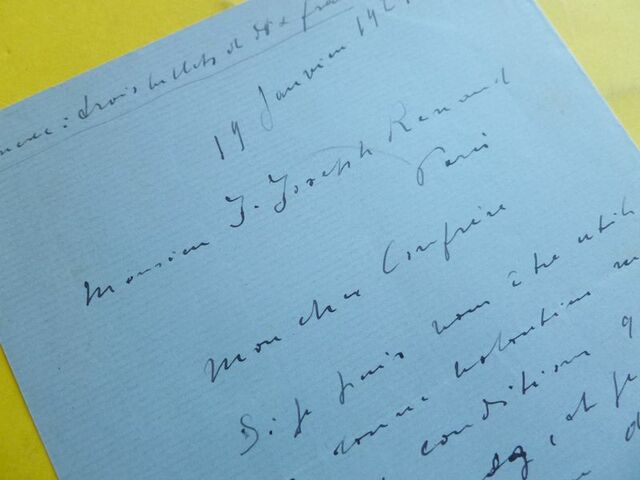 trois billets de dix fra
19 Janvier 192
Monsieur J. Joseph Renaud
Paris
Mon cher Confrère
Si je puis vous être utile
comme volontiers
conditions q
, et je